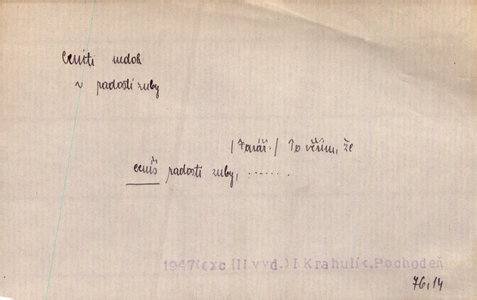 ceniti nedok
v radosti zuby
/ Farář. / To věřím, že
ceníš radosti zuby, .......
1947(exc III.vyd.) I Krahulík, Pochodeň
76,14